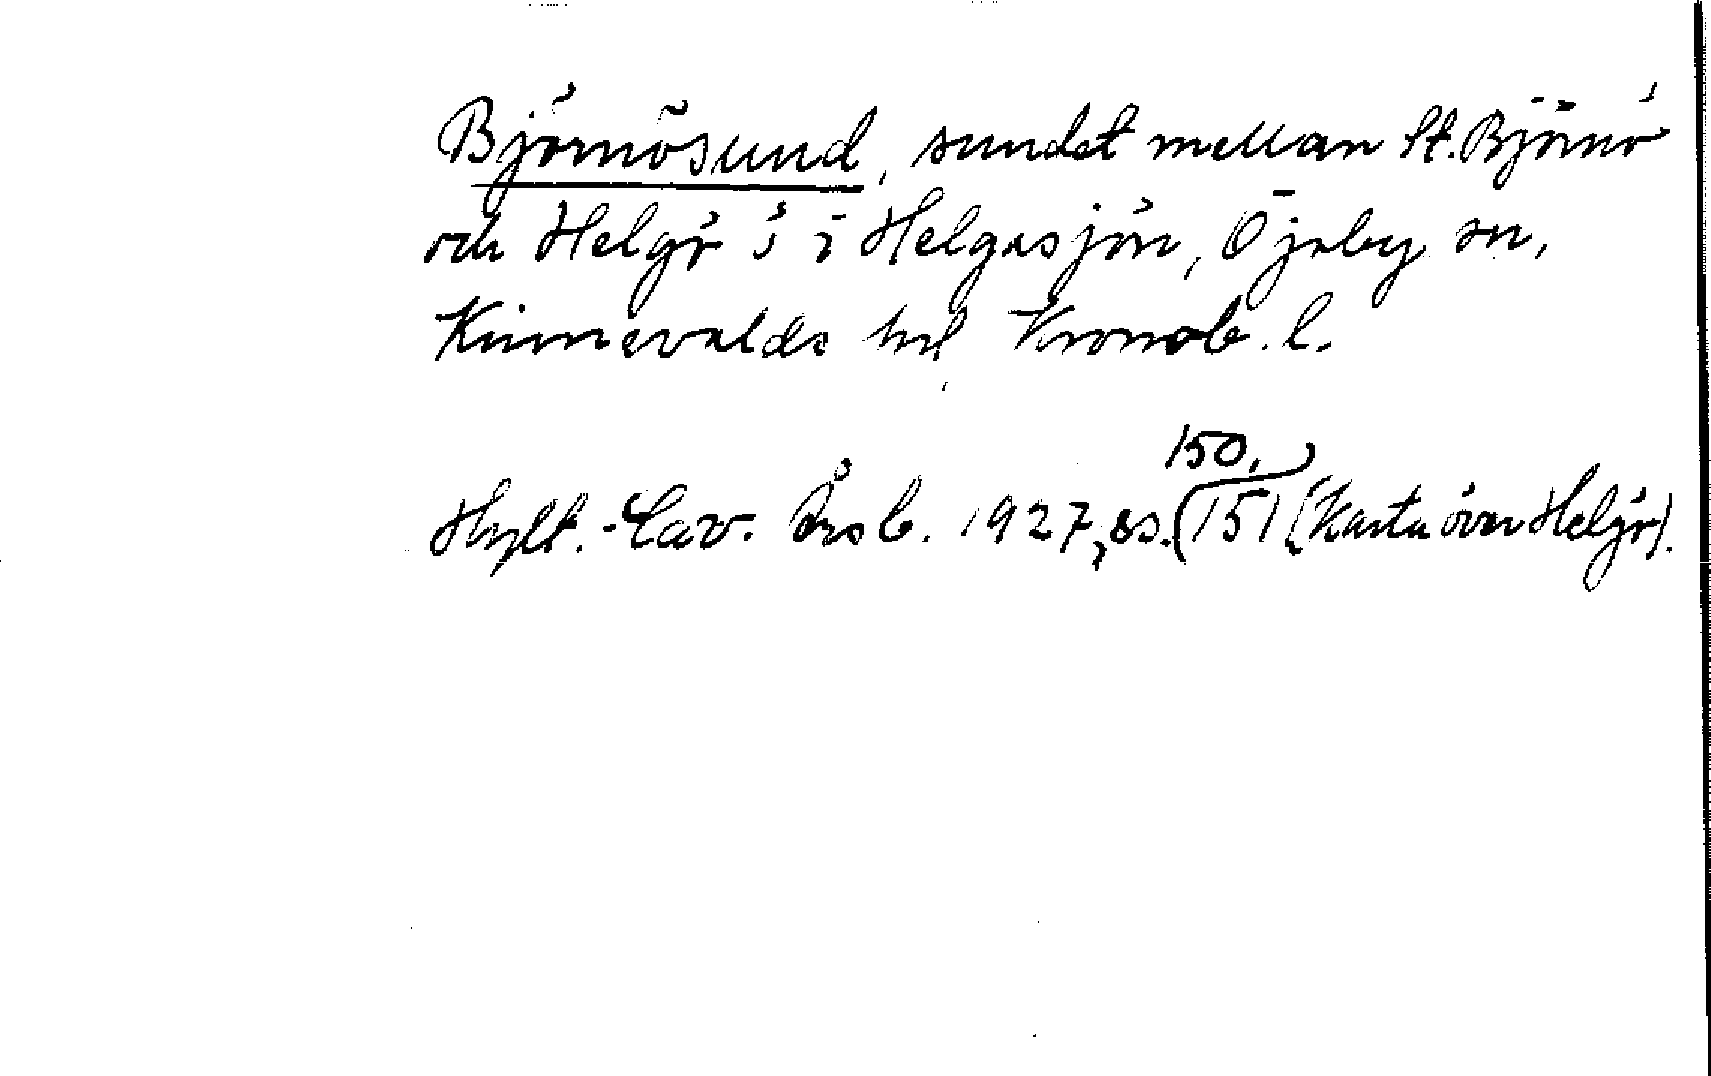 Björnösund, sundet mellan St. Björnö
och Helgö i Helgasjön, Öjaby sn,
Kinnevalds hd Kronob. l.
150,
Hylt.-Cav. Årsb. 1927, ss. (151 (Karta över Helgö).